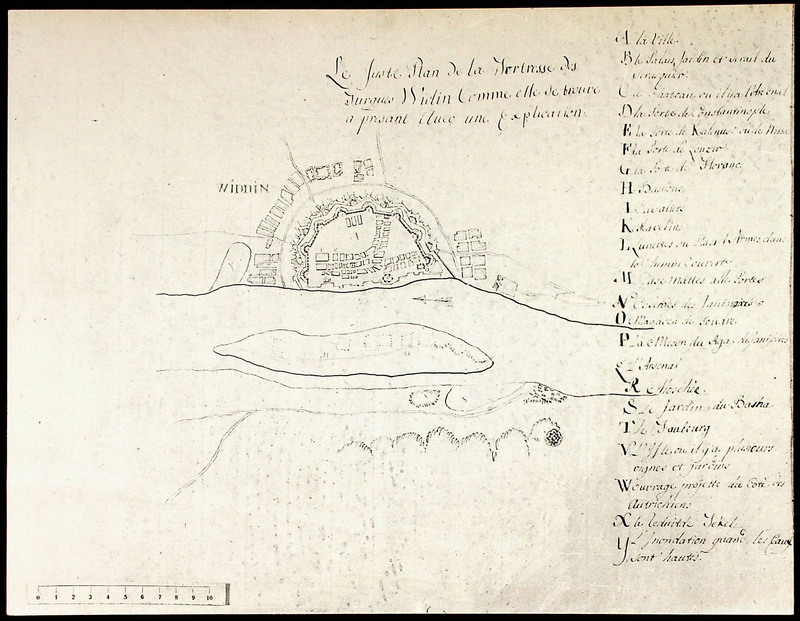 Le Juste Plan de la Fortresse des
Turques Widin Comme elle se trouve
a present Avec une Explication
WIDDIN
A la Ville
B le Palais, Jardin et Serail du
Seraquier
C le Chateau, ou il y a l'Arsenal
D la Porte de Constantinople
E la Porte de ou le
F la Porte de
G la Porte de Florance
H Bastions
I Cavaliers
K Ravelins
L Lunettes ou Place d'Armes dans
le Chemin Couverte
M Case Mattes a les Portes
N Casernes des Janitzares
O Magasin de Poudre
P La Maison du Aga
Q L'Arsenal
R Moschée
S Le Jardin du Basha
T le Faubourg
V L'Isle ou il y a plusieurs
vignes et jardins
W ouvrage projette du Coté des
Autrichiens
X le Jekel
Y L'Inondation quand les Eaux
sont hautes
0 1 2 3 4 5 6 7 8 9 10